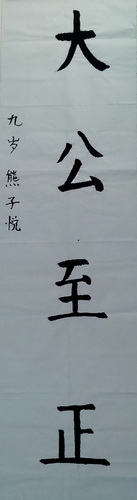 大公至正
九岁 熊子悦